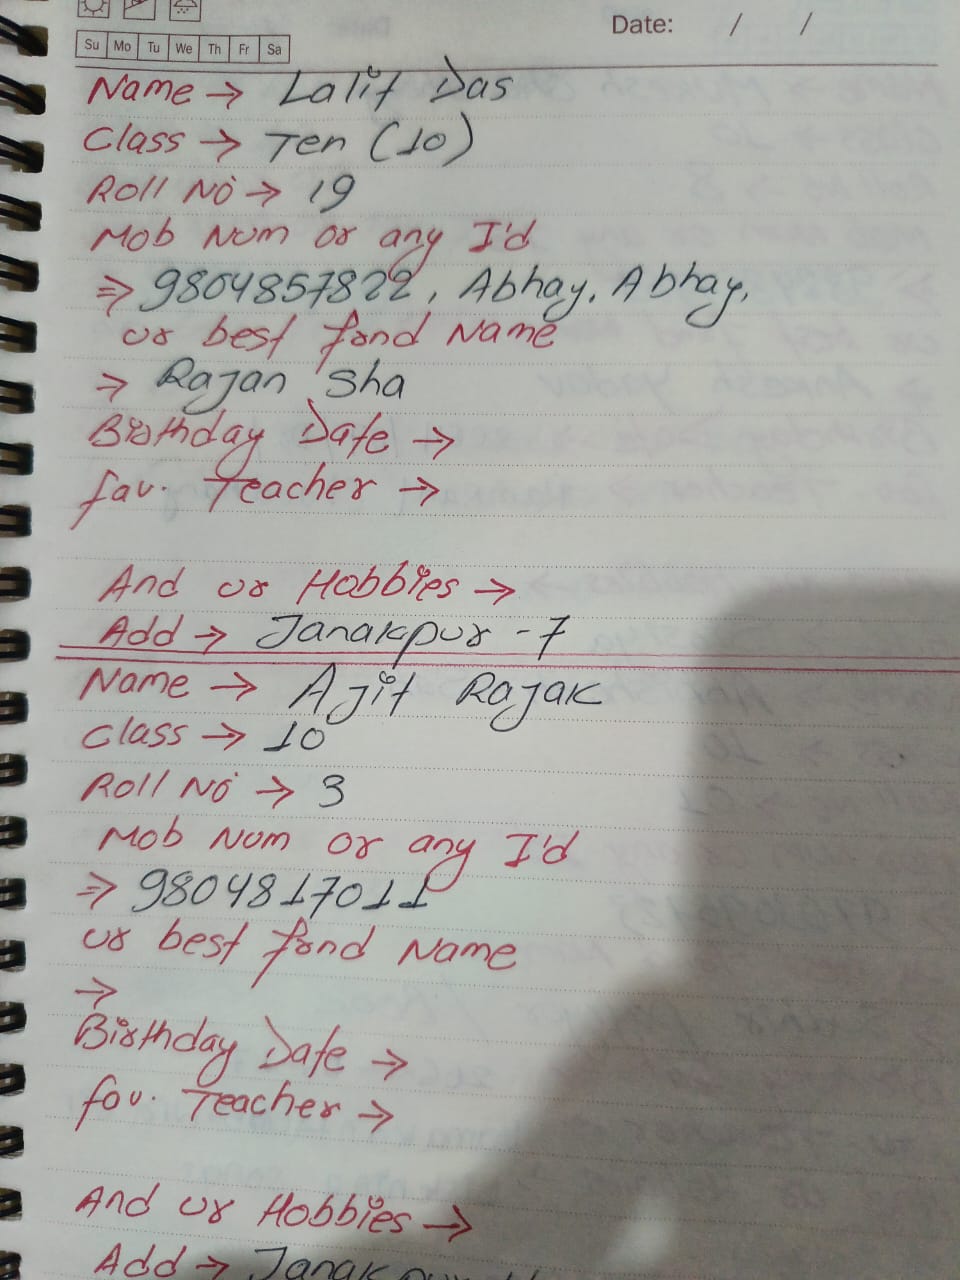 Date: / /
Su Mo Tu We Th Fr Sa
Name → Lalit Das
Class → Ten (10)
Roll No → 19
Mob Num or any I'd
⇒ 9804857822, Abhay, Abhay,
or best frnd Name
→ Rajan Sha
Birthday Date →
fav. Teacher →
And or Hobbies →
Add → Janakpur -7
Name → Ajit Rajak
Class → 10
Roll No → 3
Mob Num or any I'd
⇒ 9804817011
or best frnd Name
→
Birthday Date →
fav. Teacher →
And or Hobbies →
Add → Janakpur